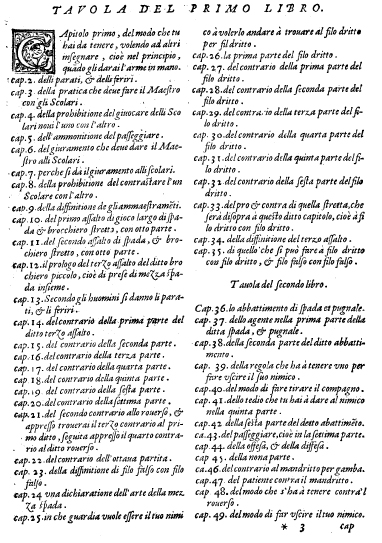 TAVOLA DEL PRIMO LIBRO.
CApitolo primo, del modo che tu
hai da tenere, volendo ad altri
insegnare, cioè nel principio,
quādo gli darai l'arme in mano.
cap. 2. delli parati, & delli feriri.
cap. 3. della pratica che deue fare il Maestro
con gli Scolari.
cap. 4. della prohibitione del giuocare delli Sco
lari noui l'uno con l'altro.
cap. 5. dell'ammonitione del passeggiare.
cap. 6. del giuramento che deue dare il Mae-
stro alli Scolari.
cap. 7. perche si dà il giuramento alli scolari.
cap. 8. della prohibitione del contrastare l'un
Scolare con l'altro.
cap. 9. della diffinitione de gli ammaestramēti.
cap. 10. del primo assalto di gioco largo di spa-
da & brocchiero stretto, con otto parte.
cap. 11. del secondo assalto di spada, & bro-
chiero stretto, con otto parte.
cap. 12. il prologo del terzo assalto del ditto bro
chiero piccolo, cioè di prese di mezza spa-
da insieme.
cap. 13. Secondo gli huomini si danno li para-
ti, & li feriri.
cap. 14. del contrario della prima parte del
ditto terzo assalto.
cap. 15. del contrario della seconda parte.
cap. 16. del contrario della terza parte.
cap. 17. del contrario della quarta parte.
cap. 18. del contrario della quinta parte.
cap. 19. del contrario della sesta parte.
cap. 20. del contrario della settima parte.
cap. 21. del secondo contrario allo rouerso, &
appresso trouerai il terzo contrario al pri-
mo ditto, seguita appresso il quarto contra-
rio al ditto rouerso.
cap. 22. del contrario dell'ottaua partita.
cap. 23. della diffinitione di filo falso con filo
falso.
cap. 24 vna dichiaratione dell'arte della mez
za spada.
cap. 25. in che guardia vuole essere il tuo nimi
co à volerlo andare à trouare al filo dritto
per fil dritto.
cap. 26. la prima parte del filo dritto.
cap. 27. del contrario della prima parte del
filo dritto.
cap. 28. del contrario della seconda parte del
filo dritto.
cap. 29. del contrario della terza parte del fi-
lo dritto.
cap. 30. del contrario della quarta parte del
filo dritto.
cap. 31. del contrario della quinta parte del fi-
lo dritto.
cap. 32. del contrario della sesta parte del filo
dritto.
cap. 33. del pro & contra di quella stretta, che
serà disopra à questo ditto capitolo, cioè à fi
lo dritto con filo dritto.
cap. 34. della diffinitione del terzo assalto.
cap. 35. di quello che si può fare à filo dritto
con filo dritto, & filo falso con filo falso.
Tauola del secondo libro.
Cap. 36. lo abbattimento di spada et pugnale.
cap. 37. dello agente nella prima parte della
ditta spada, & pugnale.
cap. 38. della seconda parte del ditto abbatti-
mento.
cap. 39. della regola che hà à tenere vno per
fare vscire il suo nimico.
cap. 40. del modo di fare tirare il compagno.
cap. 41. dello tedio che tu hai à dare al nimico
nella quinta parte.
cap. 42 della sesta parte del detto abattimēto.
ca. 43. del passeggiare, cioè in la settima parte.
cap. 44. della offesa, & della diffesa.
cap 45. della nona parte.
ca. 46. del contrario al mandritto per gamba.
cap. 47. del patiente contra il mandritto.
cap 48. del modo che s'hà à tenere contra'l
rouerso.
cap. 49. del modo di far vscire il tuo nimico.
* 3 cap